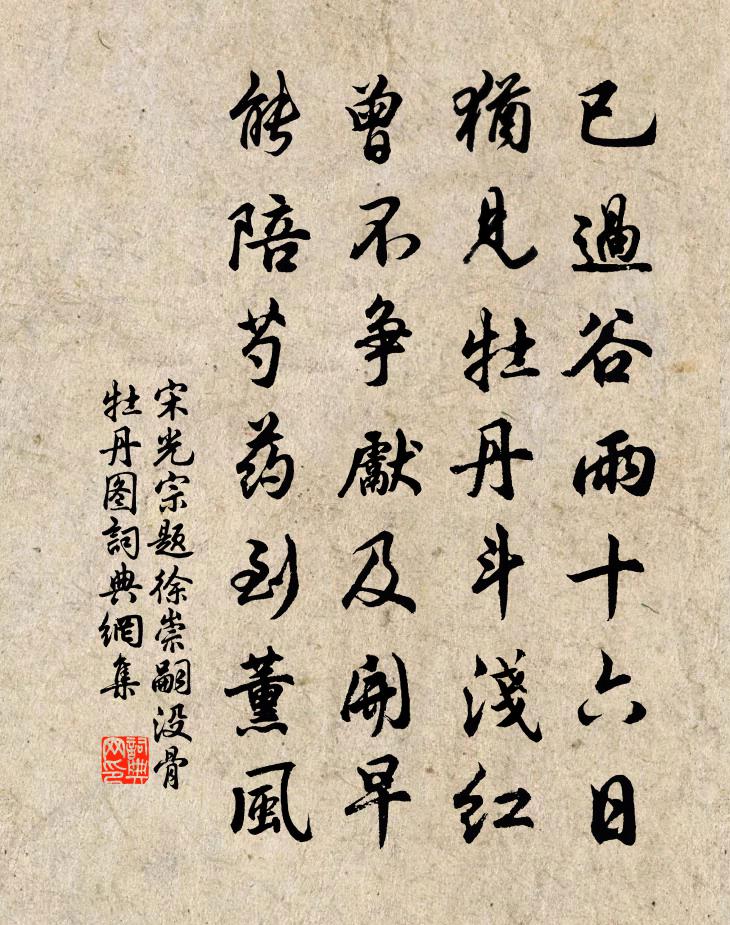 已過谷雨十六日
猶見牡丹斗淺紅
曾不争獻及開早
能陪芍药到薰風
宋光宗题徐崇嗣没骨
牡丹图詞典網集
詞典
网印